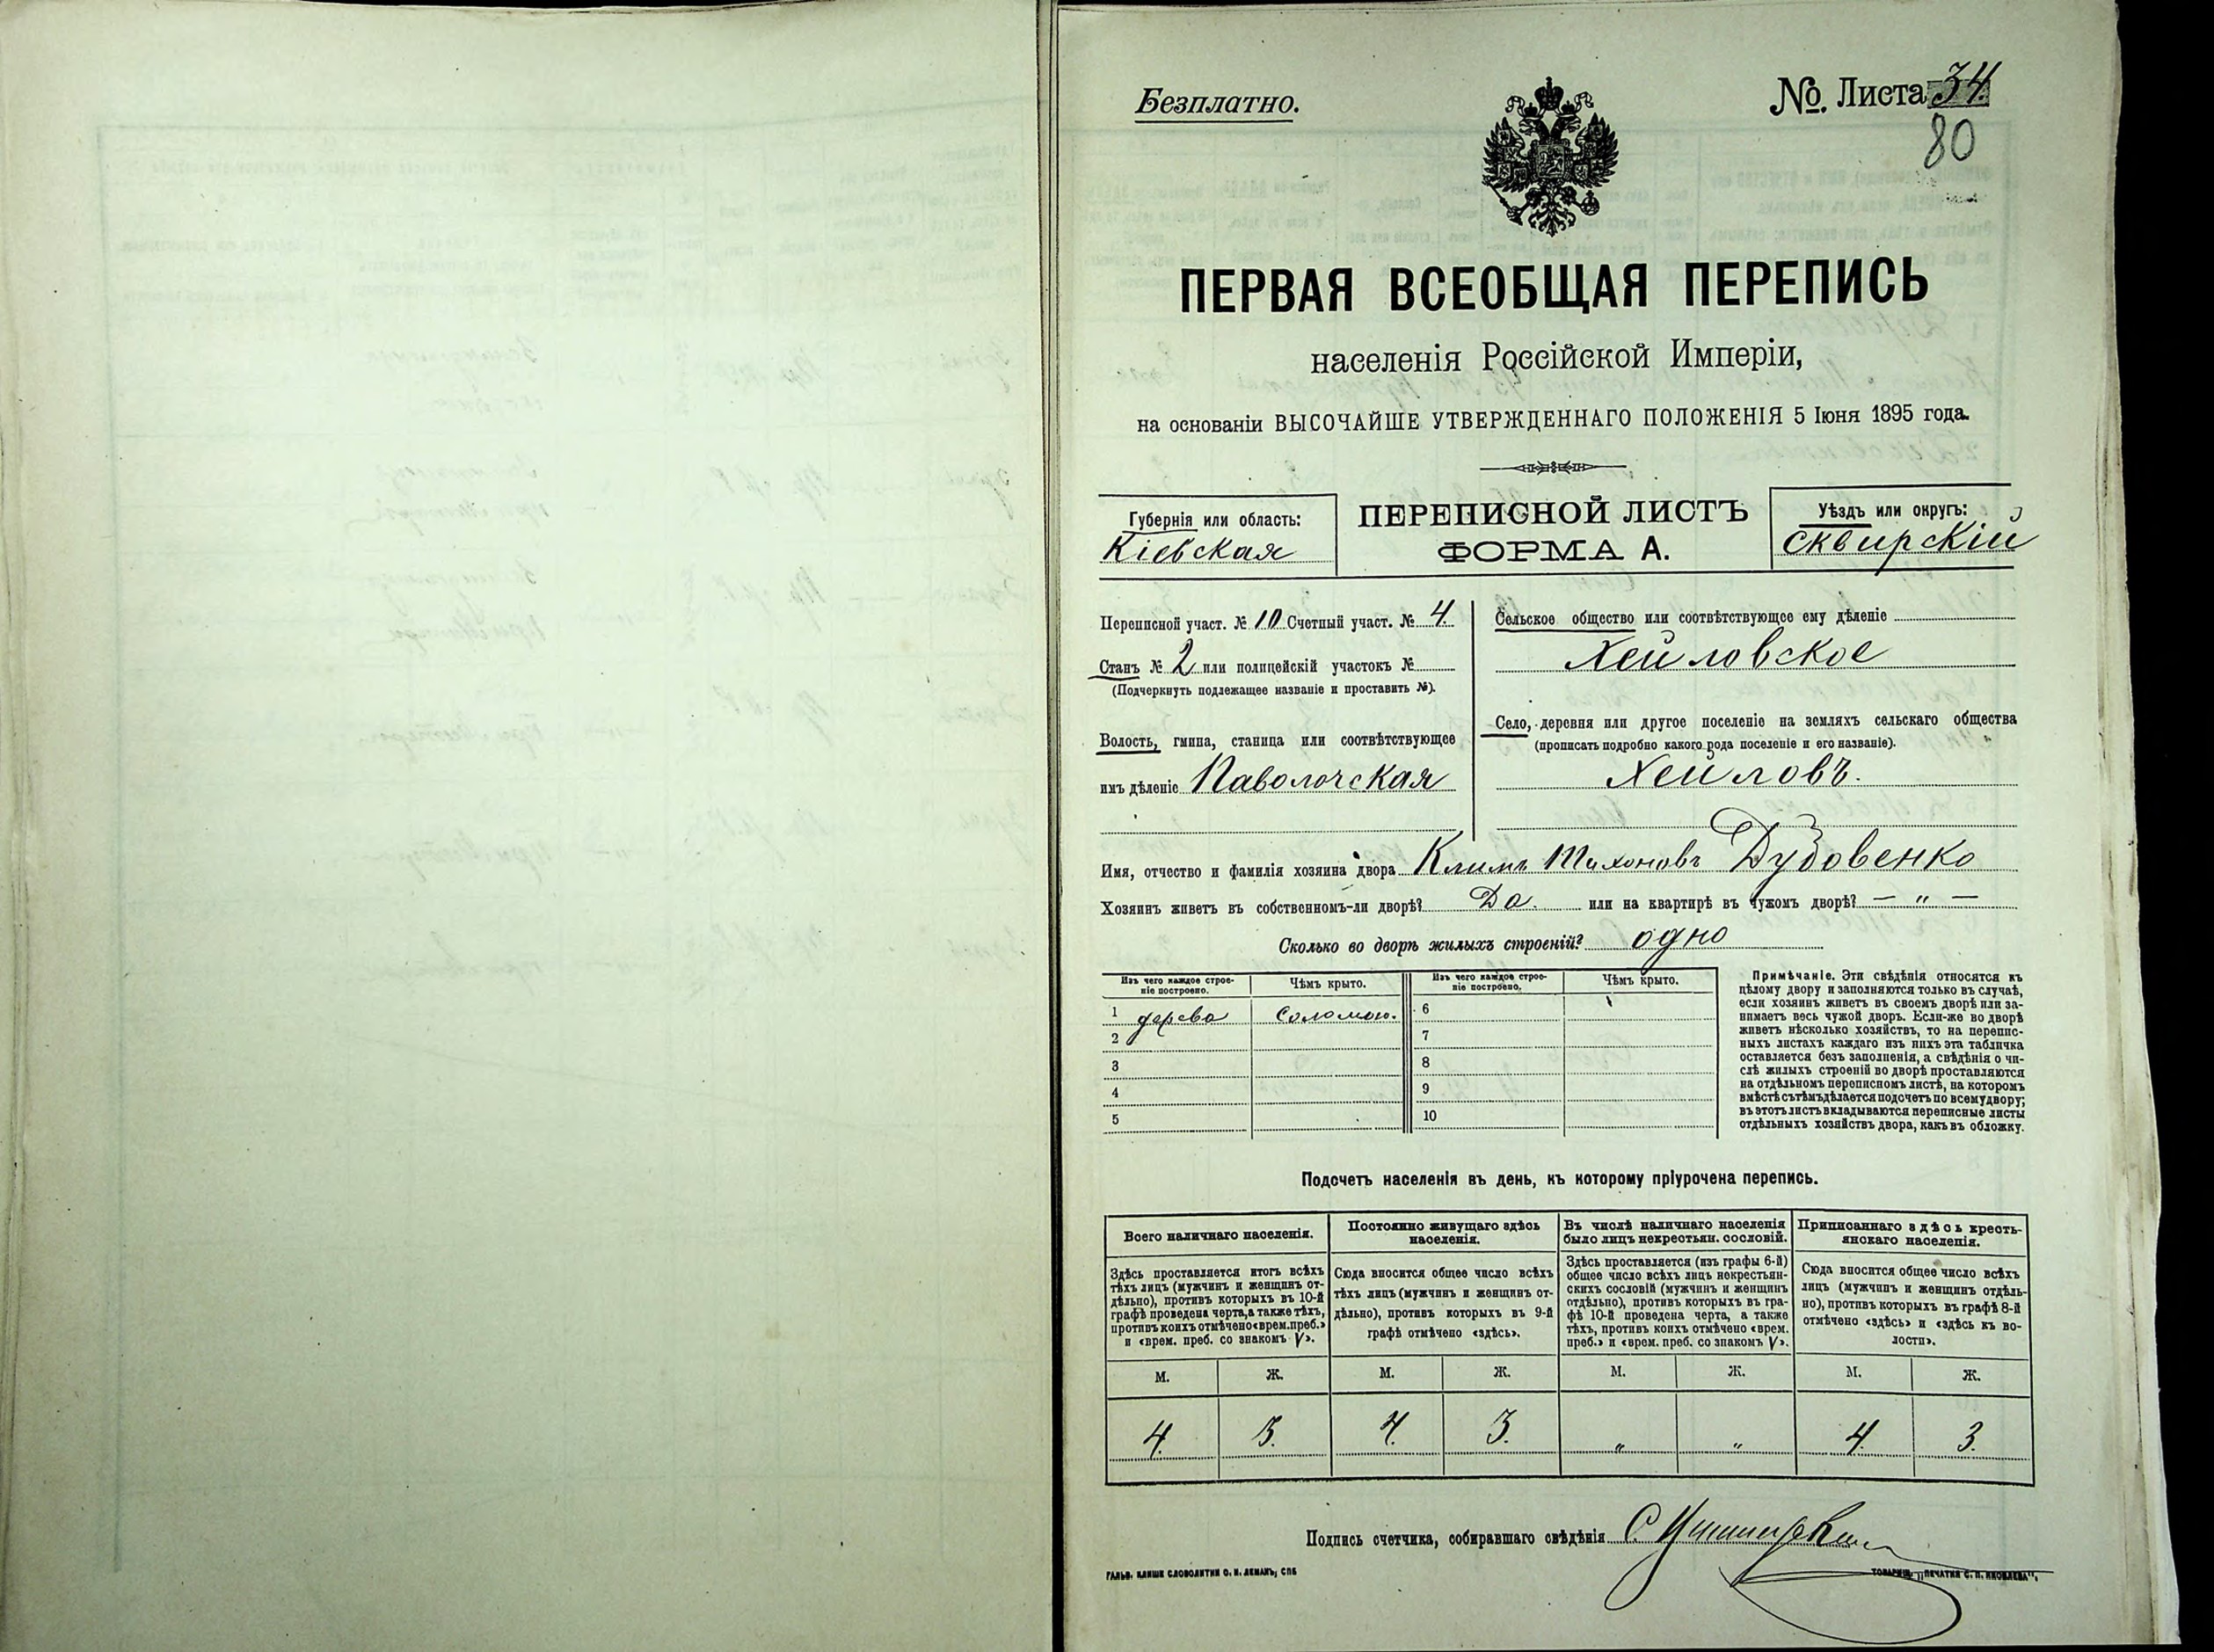 Безплатно.
№ Листа 34.
80
ПЕРВАЯ ВСЕОБЩАЯ ПЕРЕПИСЬ
населенія Россійской Имперіи,
на основаніи ВЫСОЧАЙШЕ УТВЕРЖДЕННАГО ПОЛОЖЕНІЯ 5 Іюня 1895 года.
Губернія или область:
Кіевская
ПЕРЕПИСНОЙ ЛИСТЪ
ФОРМА А.
Уѣздъ или округъ:
Сквирскій
Переписной участ. № 10 Счетный участ. № 4.
Станъ № 2 или полицейскій участокъ №
(Подчеркнуть подлежащее названіе и проставить №).
Волость, гмина, станица или соотвѣтствующее
имъ дѣленіе Паволочская
Сельское общество или соотвѣтствующее ему дѣленіе
Хейловское
Село, деревня или другое поселеніе на земляхъ сельскаго общества
(прописать подробно какого рода поселеніе и его названіе).
Хейловъ.
Имя, отчество и фамилія хозяина двора Климъ Тихоновъ Дубовенко
Хозяинъ живетъ въ собственномъ-ли дворѣ? Да. или на квартирѣ въ чужомъ дворѣ? — „ —
Сколько во дворѣ жилыхъ строеній? одно
Изъ чего каждое строе-
ніе построено.
Чѣмъ крыто.
Изъ чего каждое строе-
ніе построено.
Чѣмъ крыто.
1 дерева Соломою. 6
2 7
3 8
4 9
5 10
Примѣчаніе. Эти свѣдѣнія относятся къ
цѣлому двору и заполняются только въ случаѣ,
если хозяинъ живетъ въ своемъ дворѣ или за-
нимаетъ весь чужой дворъ. Если-же во дворѣ
живетъ нѣсколько хозяйствъ, то на перепис-
ныхъ листахъ каждаго изъ нихъ эта табличка
оставляется безъ заполненія, а свѣдѣнія о чи-
слѣ жилыхъ строеній во дворѣ проставляются
на отдѣльномъ переписномъ листѣ, на которомъ
вмѣстѣ съ тѣмъ дѣлается подсчетъ по всему двору;
въ этотъ листъ вкладываются переписные листы
отдѣльныхъ хозяйствъ двора, какъ въ обложку.
Подсчетъ населенія въ день, къ которому пріурочена перепись.
Всего наличнаго населенія.
Здѣсь проставляется итогъ всѣхъ
тѣхъ лицъ (мужчинъ и женщинъ от-
дѣльно), противъ которыхъ въ 10-й
графѣ проведена черта, а также тѣхъ,
противъ коихъ отмѣчено «врем. преб.»
и «врем. преб. со знакомъ V».
Постоянно живущаго здѣсь
населенія.
Сюда вносится общее число всѣхъ
тѣхъ лицъ (мужчинъ и женщинъ от-
дѣльно), противъ которыхъ въ 9-й
графѣ отмѣчено «здѣсь».
Въ числѣ наличнаго населенія
было лицъ некрестьян. сословій.
Здѣсь проставляется (изъ графы 6-й)
общее число всѣхъ лицъ некрестьян-
скихъ сословій (мужчинъ и женщинъ
отдѣльно), противъ которыхъ въ гра-
фѣ 10-й проведена черта, а также
тѣхъ, противъ коихъ отмѣчено «врем.
преб.» и «врем. преб. со знакомъ V».
Приписаннаго здѣсь кресть-
янскаго населенія.
Сюда вносится общее число всѣхъ
лицъ (мужчинъ и женщинъ отдѣль-
но), противъ которыхъ въ графѣ 8-й
отмѣчено «здѣсь» и «здѣсь къ во-
лости».
М. Ж. М. Ж. М. Ж. М. Ж.
4. 3. 4. 3. „ „ 4. 3.
Подпись счетчика, собиравшаго свѣдѣнія С.
ГАЛЬВ. КЛИШЕ СЛОВОЛИТНИ О. И. ЛЕМАНЪ, СПБ
ТОВАРИЩ. „ПЕЧАТНЯ С. П. ЯКОВЛЕВА“.